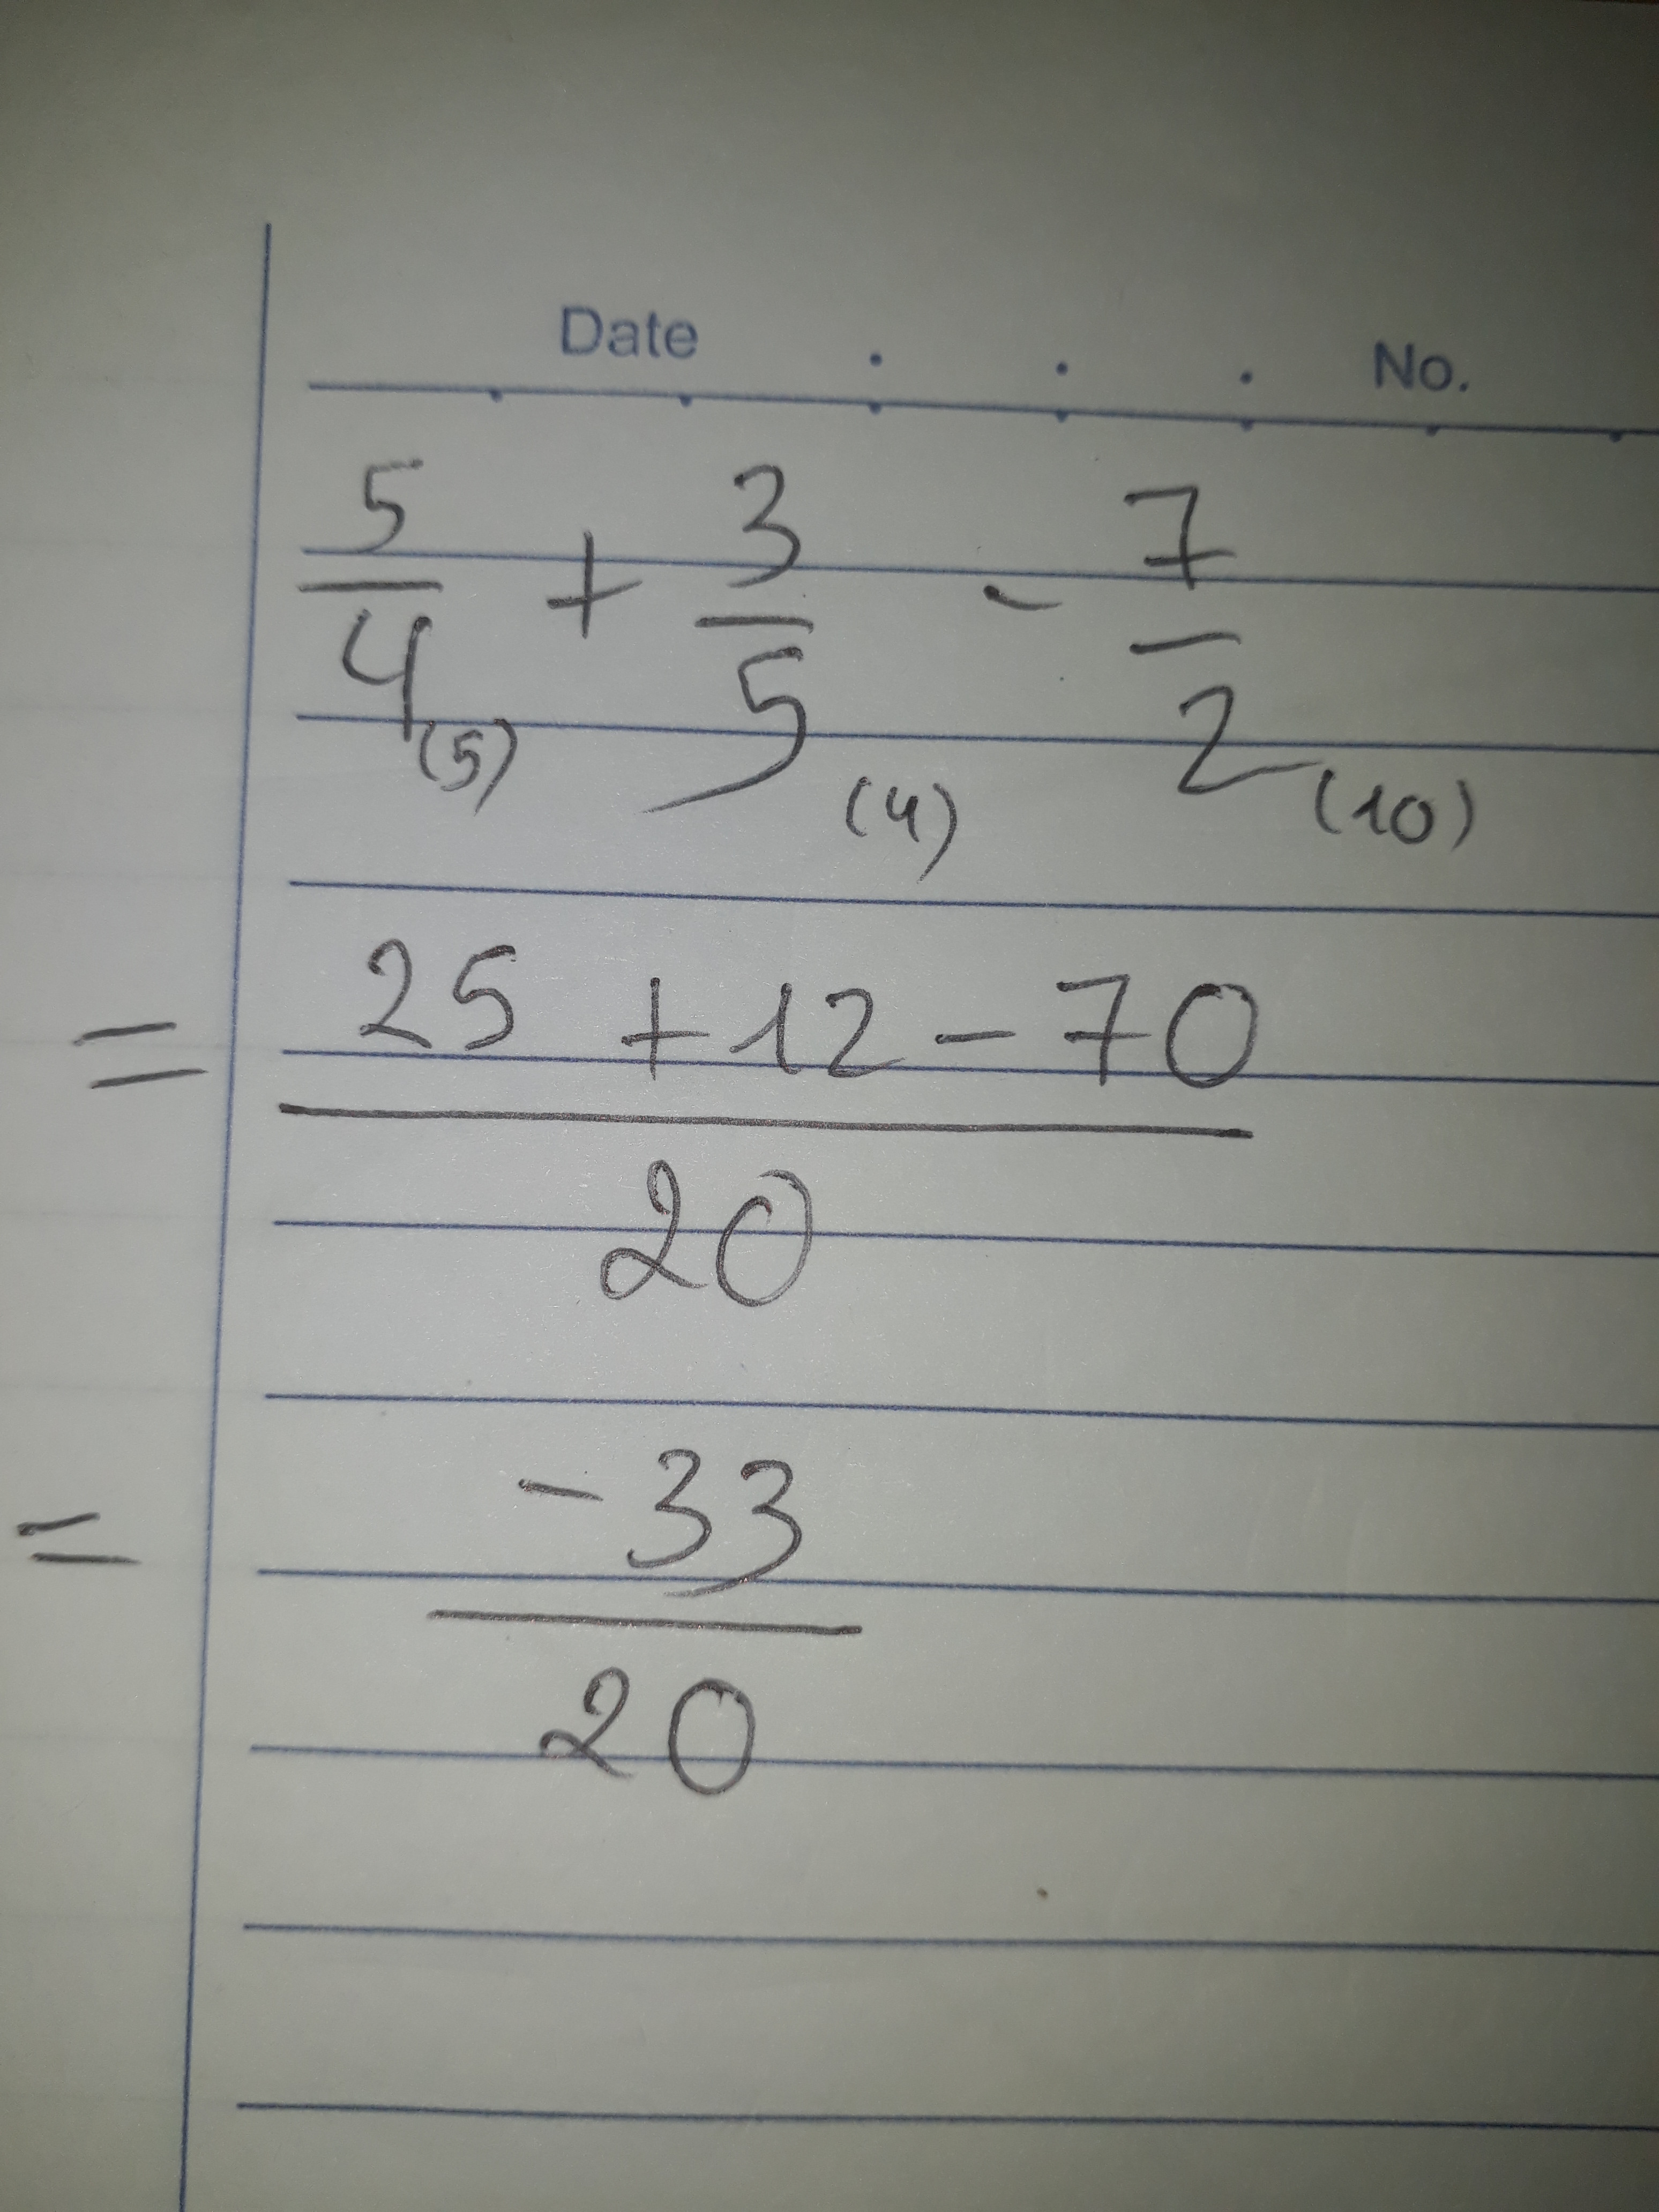 Date . . . No.
5/4 (5) + 3/5 (4) - 7/2 (10)
= (25 + 12 - 70)/20
= -33/20